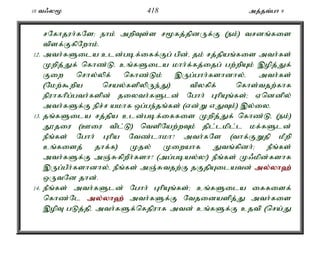 10 வஃலமூ 418 அத்தவ்பா 9
சகோதரர்களே; நாம் அறிவுள்ள சமூகத்தினருக்கு (நம்) வசனங்களை
விளக்குகிறோம்.
12. அவர்களுடைய உடன்படிக்கைக்குப் பின், தம் சத்தியங்களை அவர்கள்
முறித்துக் கொண்டு, உங்களுடைய மார்க்கத்தைப் பற்றியும் இழித்துக்
குறை சொல்லிக் கொண்டும் இருப்பார்களானால், அவர்கள்
(மேற்கூறிய செயல்களிலிருந்து) விலகிக் கொள்வதற்காக
நிராகரிப்பவர்களின் தலைவர்களுடன் போர் புரியுங்கள்; ஏனெனில்
அவர்களுக்கு நிச்சயமாக ஒப்பந்தங்கள் (என்று எதுவும்) இல்லை.
13. தங்களுடைய சத்திய உடன்படிக்கைகளை முறித்துக் கொண்டு, (நம்)
தூதரை (ஊரை விட்டு) வெளியேற்றவும் திட்டமிட்ட மக்களுடன்
நீங்கள் போர் புரிய வேண்டாமா? அவர்களே (வாக்குறுதி மீறி
உங்களைத் தாக்க) முதல் முறையாக துவங்கினர்; நீங்கள்
அவர்களுக்கு அஞ்சுகிறீர்களா? (அப்படியல்ல!) நீங்கள் முஃமின்களாக
இருப்பீர்களானால், நீங்கள் அஞ்சுவதற்கு தகுதியுடையவன் அல்லாஹ்
ஒருவனே தான்.
14. நீங்கள் அவர்களுடன் போர் புரியுங்கள்; உங்களுடைய கைகளைக்
கொண்டே அல்லாஹ் அவர்களுக்கு வேதனையளித்து அவர்களை
இழிவு படுத்தி, அவர்களுக்கெதிராக அவன் உங்களுக்கு உதவி (செய்து